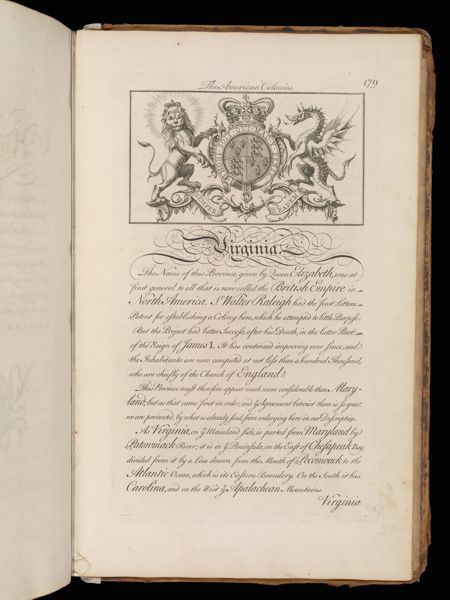 The American Colonies.
179
HONI SOIT QUI MAL Y PENSE
SEMPER EADEM
Virginia.
The Name of this Province, given by Queen Elizabeth, was at
first general to all that is now called the British Empire in
North America. Sr. Walter Raleigh had the first Letters
Patent for establishing a Colony here, which he attempted to little Purpose;
But the Project had better Success, after his Death, in the latter Part
of the Reign of James I. It has continued improving ever since, and
the Inhabitants are now computed at not less than a hundred Thousand,
who are chiefly of the Church of England.
This Province must therefore appear much more considerable than Mary-
land; but as that came first in order, and ye Agreement betwixt them is so great,
we are prevented, by what is already said, from enlarging here in our Description.
As Virginia, on ye Mainland side, is parted from Maryland by
Patowmack River; it is in ye Peninsula, on the East of Chesapeak Bay
divided from it by a Line drawn from the Mouth of Pocomoack to the
Atlantic Ocean, which is its Eastern Boundary. On the South it has
Carolina, and on the West ye Apalachean Mountains.
Virginia